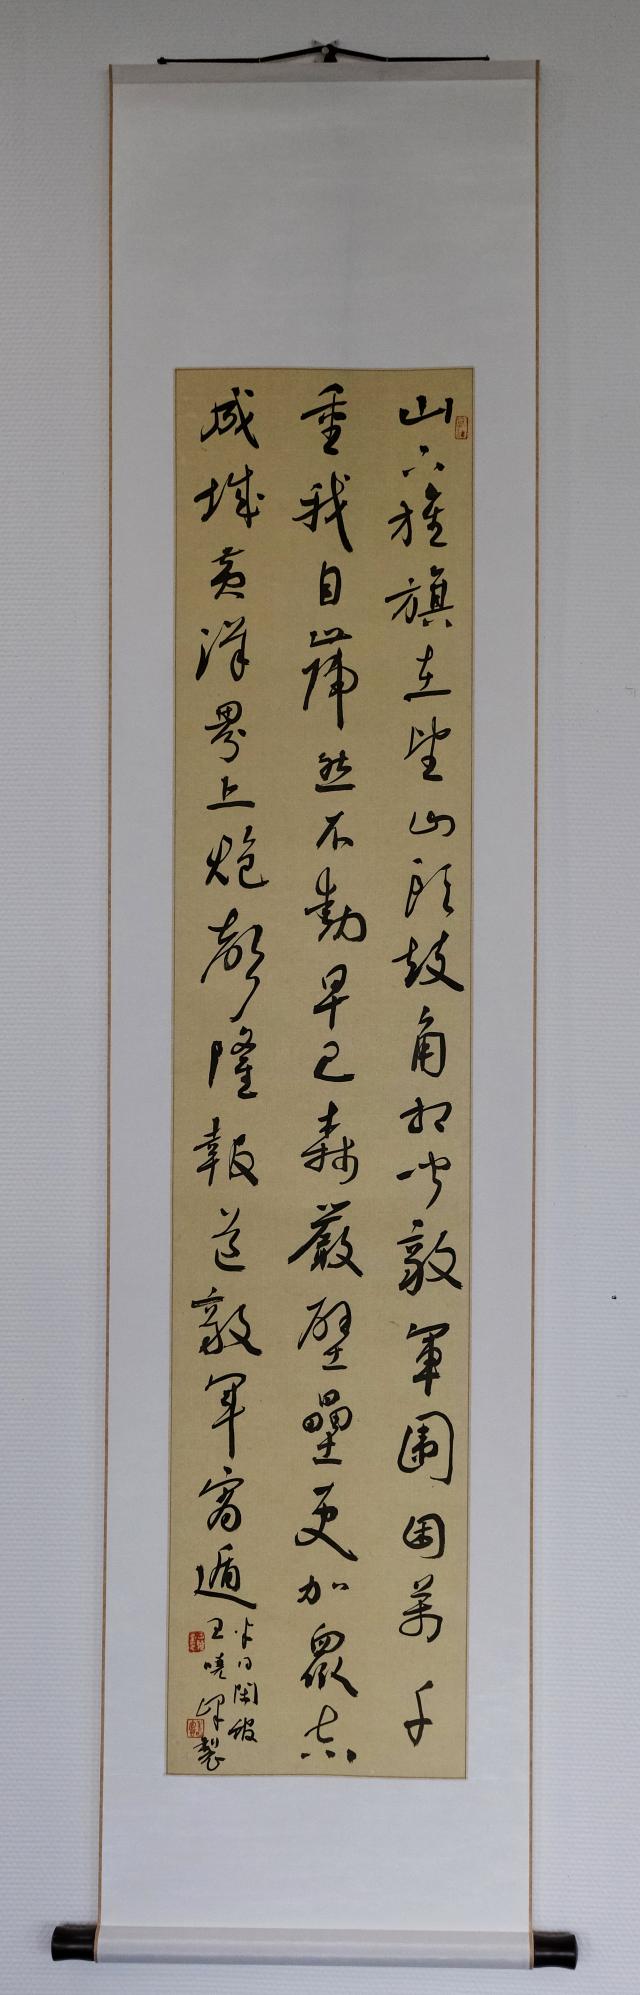 山下旌旗在望山頭鼓角相聞敵軍圍困萬千
重我自巋然不動早已森嚴壁壘更加眾志
成城黃洋界上炮聲隆報道敵軍宵遁
王曉峰製